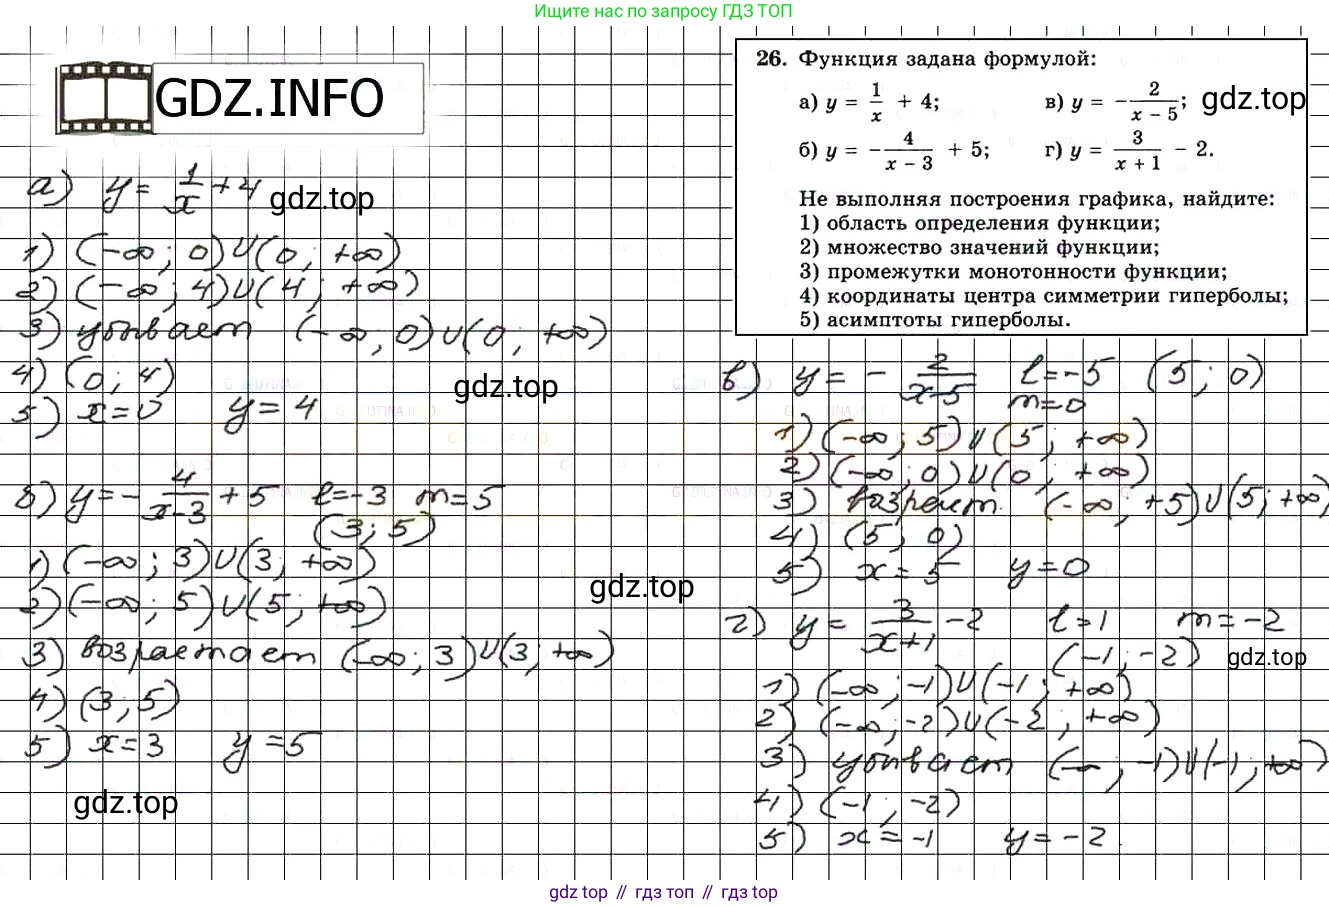 Ищите нас по запросу ГДЗ ТОП
GDZ.INFO
26. Функция задана формулой:
а) y = 1/x + 4;
в) y = -2/(x - 5);
gdz.top
б) y = -4/(x - 3) + 5;
г) y = 3/(x + 1) - 2.
Не выполняя построения графика, найдите:
1) область определения функции;
2) множество значений функции;
3) промежутки монотонности функции;
4) координаты центра симметрии гиперболы;
5) асимптоты гиперболы.
а) y = 1/x + 4
gdz.top
1) (-∞; 0)∪(0; +∞)
2) (-∞; 4)∪(4; +∞)
3) убывает (-∞; 0)∪(0; +∞)
4) (0; 4)
gdz.top
5) x=0 y=4
б) y = -4/(x-3) + 5 l=-3 m=5
(3; 5)
1) (-∞; 3)∪(3; +∞)
2) (-∞; 5)∪(5; +∞)
3) возрастает (-∞; 3)∪(3; +∞)
4) (3; 5)
5) x=3 y=5
gdz.top
в) y = -2/(x-5) l=-5 (5; 0)
m=0
1) (-∞; 5)∪(5; +∞)
2) (-∞; 0)∪(0; +∞)
3) возраст. (-∞; +5)∪(5; +∞)
4) (5; 0)
5) x=5 y=0
gdz.top
г) y = 3/(x+1) - 2 l=1 m=-2
(-1; -2)
gdz.top
1) (-∞; -1)∪(-1; +∞)
2) (-∞; -2)∪(-2; +∞)
3) убывает (-∞; -1)∪(-1; +∞)
4) (-1; -2)
5) x=-1 y=-2.
gdz top // гдз топ // гдз top